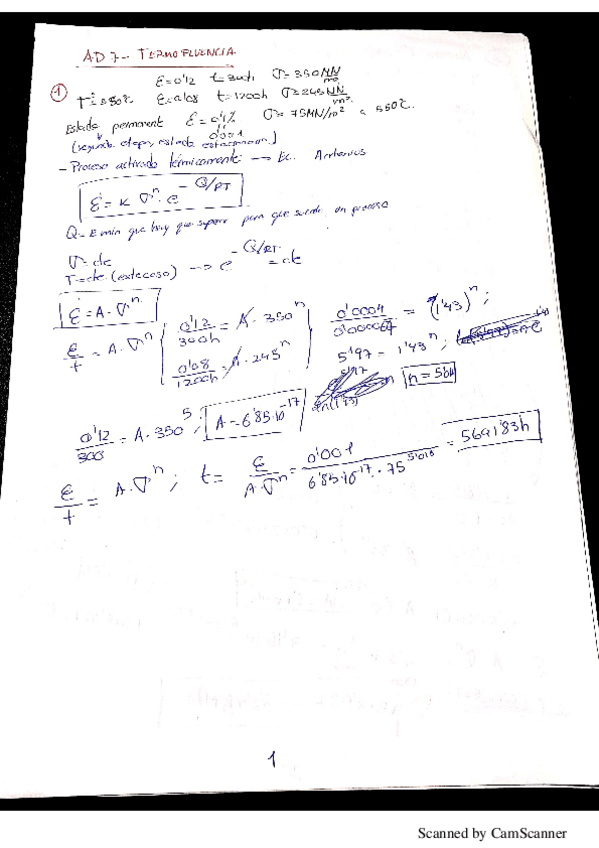 AD 7-- TERMOFLUENCIA
ε=0'12 t=300h σ=350 MN/m²
① T=550ºC ε=0'08 t=1200h σ=245 MN/m²
Estado permanente ε=0'1% σ=75MN/m² a 550ºC.
(segunda etapa, estado estacionario) 0'001
- Proceso activado térmicamente → Ec. Arrhenius
ε̇ = K σⁿ · e^(-Q/RT)
Q- E min que hay que superar para que suceda un proceso
σ=cte
T=cte → e^(-Q/RT) = cte
ε̇ = A · σⁿ
ε/t = A · σⁿ 0'12/300h = A · 350ⁿ 0'0004/0'000067 = (1'43)ⁿ ;
0'08/1200h = A · 245ⁿ 5'97 = 1'43ⁿ ;
0'12/300 = A · 350⁵ ; A = 6'85·10⁻¹⁷
ε/t = A · σⁿ ; t = ε/(A·σⁿ) = 0'001/(6'85·10⁻¹⁷ · 75^5'018) = 5691'83h
1
Scanned by CamScanner